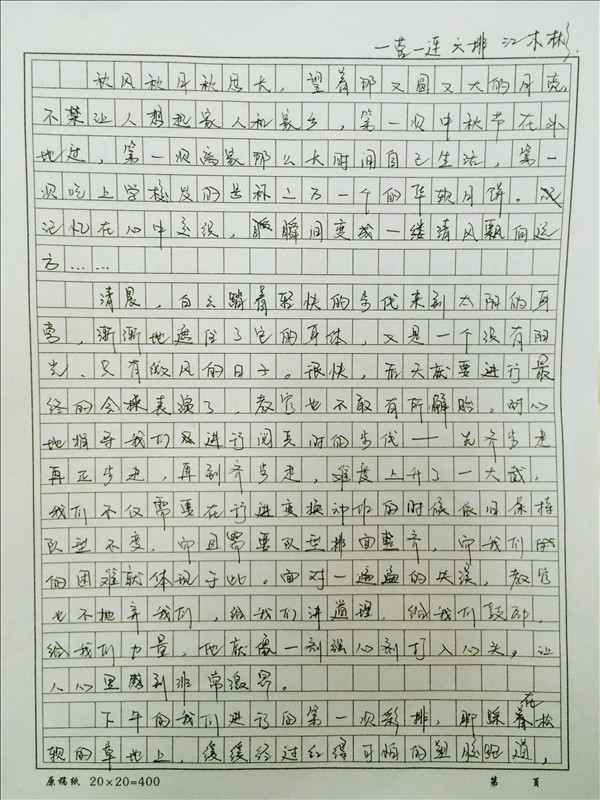 一营一连六排 江木彬
秋风秋月秋思长，望着那又圆又大的月亮，
不禁让人想起家人和家乡，第一次中秋节在外
地过，第一次离家那么长时间自己生活，第一
次吃上学校发的号称二元一个的华软月饼。
记忆在心中交织，瞬间变成一缕清风飘向远
方……
清晨，白云踏着轻快的步伐来到太阳的耳
旁，渐渐地遮住了它的身体，又是一个没有阳
光、只有微风的日子。很快，后天就要进行最
终的会操表演了，教官也不敢有所解怠。耐心
地指导我们进行阅兵时的步伐——先齐步走
再正步走，再到齐步走，难度上升了一大截，
我们不仅需要在行进变换动作的时候依旧保持
队型不变，而且需要队型排面整齐，而我们
的困难就体现于此。面对一遍遍的失误，教官
也不抛弃我们，给我们讲道理，给我们鼓励，
给我们力量，他就像一剂强心剂打入心头，让
人心里感到非常激昂。
下午的我们进行的第一次彩排，脚踩在松
软的草地上，缓缓经过红得可怕的塑胶跑道，
原稿纸 20×20=400 第 頁